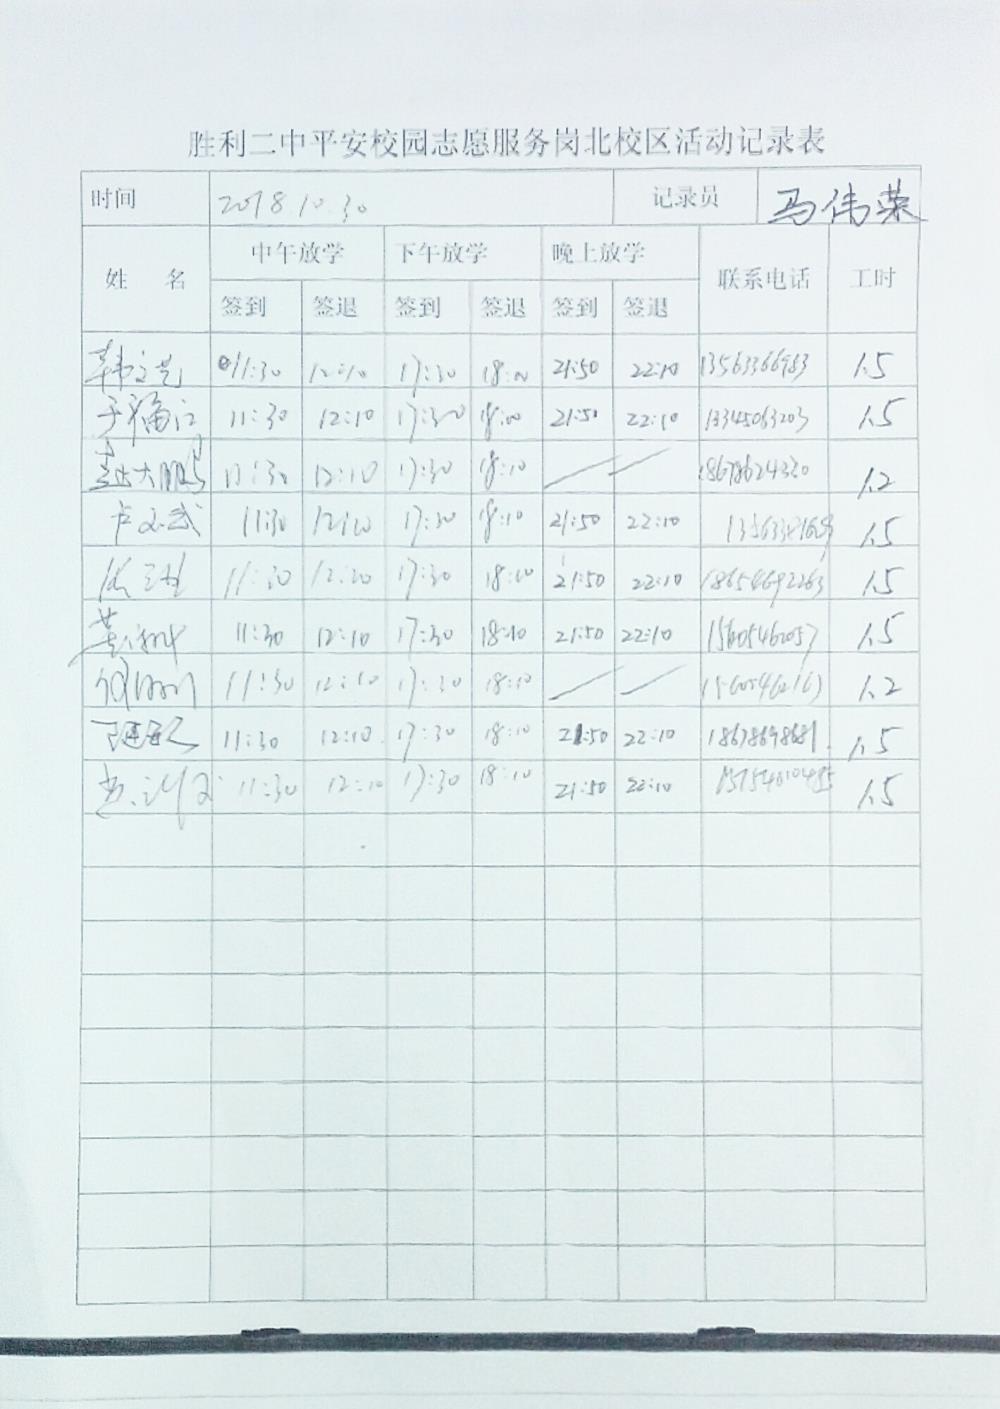 胜利二中平安校园志愿服务岗北校区活动记录表
时间 2018 10.30 记录员 马伟荣
姓 名 中午放学 下午放学 晚上放学 联系电话 工时
签到 签退 签到 签退 签到 签退
韩文芝 11:30 12:10 17:30 18:00 21:50 22:10 13563366983 1.5
于福江 11:30 12:10 17:30 18:00 21:50 22:10 13345063203 1.5
大鹏 11:30 12:10 17:30 18:10 18678624320 1.2
卢文武 11:30 17:30 18:10 21:50 22:10 1.5
11:30 17:30 18:10 21:50 22:10 18654692263 1.5
11:30 12:10 17:30 18:10 21:50 22:10 15605462057 1.5
11:30 12:10 17:30 18:10 1.2
11:30 12:10 17:30 18:10 21:50 22:10 18678698681 1.5
11:30 12:10 17:30 18:10 21:50 22:10 1.5